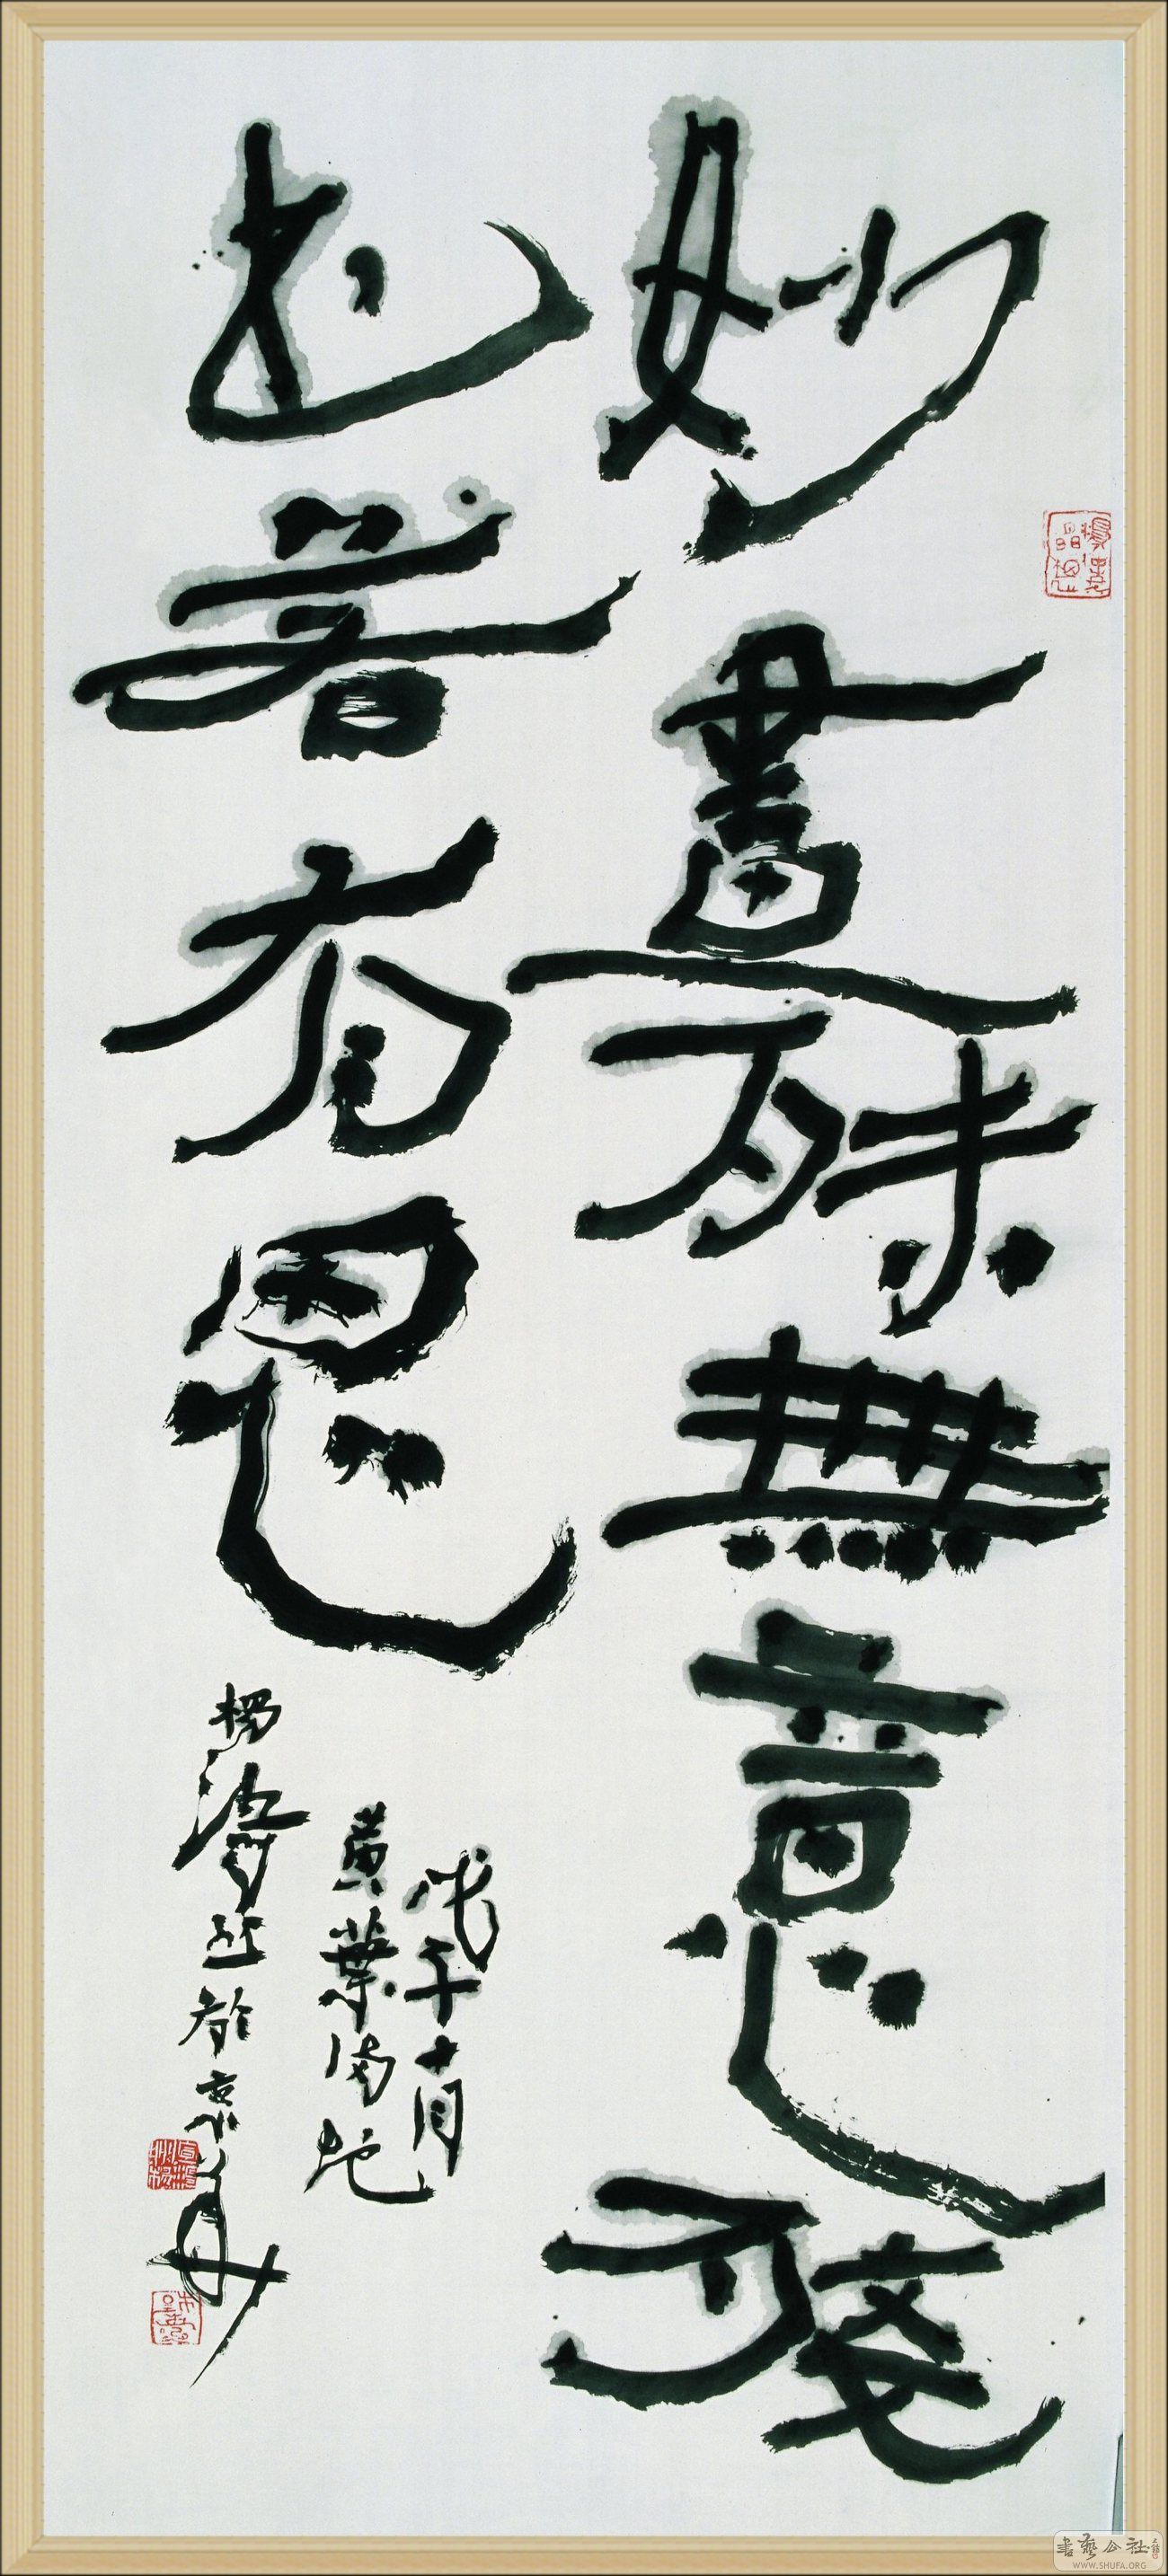 妙畫殊無意殘
若有思
戊子十月
黃葉滿地
楊濤 於京華
書藝公社
WWW.SHUFA.ORG